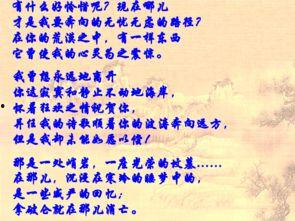 有什么好怜惜呢?现在哪儿
才是我要奔向的无忧无虑的路径?
在你的荒漠之中,有一样东西
它曾使我的心灵为之震惊。
我曾想永远地离开
你这寂寞和静止不动地海岸,
怀着狂欢之情祝贺你,
并任我的诗歌顺着你的波涛奔向远方,
但是我却未能如愿以偿!
那是一处峭岩,一座光荣的坟墓……
在那儿,沉浸在寒冷的睡梦中的,
是一些威严的回忆;
拿破仑就在那儿消亡。